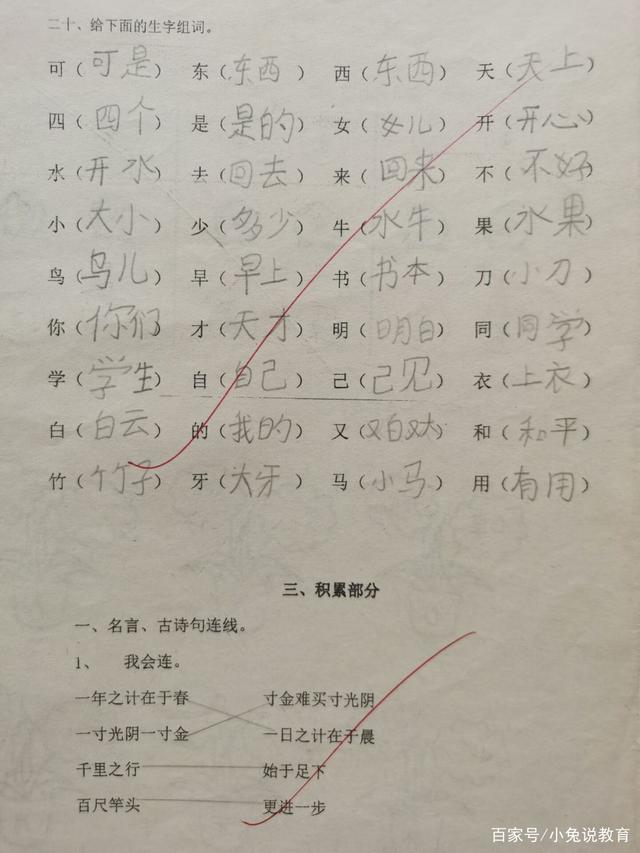 二十、给下面的生字组词。
可（可是） 东（东西） 西（东西） 天（天上）
四（四个） 是（是的） 女（女儿） 开（开心）
水（开水） 去（回去） 来（回来） 不（不好）
小（大小） 少（多少） 牛（水牛） 果（水果）
鸟（鸟儿） 早（早上） 书（书本） 刀（小刀）
你（你们） 才（天才） 明（明白） 同（同学）
学（学生） 自（自己） 己（己见） 衣（上衣）
白（白云） 的（我的） 又（又白又大） 和（和平）
竹（竹子） 牙（大牙） 马（小马） 用（有用）
三、积累部分
一、名言、古诗句连线。
1、 我会连。
一年之计在于春 寸金难买寸光阴
一寸光阴一寸金 一日之计在于晨
千里之行 始于足下
百尺竿头 更进一步
百家号/小兔说教育